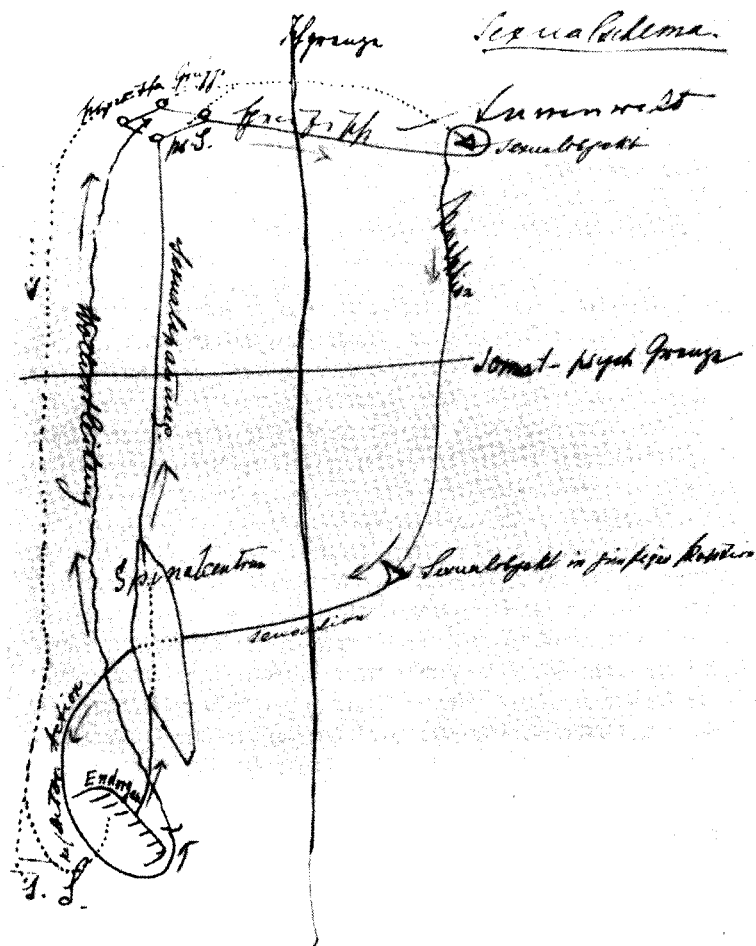 Sexualschema.
Ichgrenze
Aussenwelt
ps. S.
Sexualobjekt
Sexualspannung.
Wollustleitung
Somat-psych Grenze
Spinalcentrum
Sexualobjekt in günstiger Position
Sensation
Endorgan
T